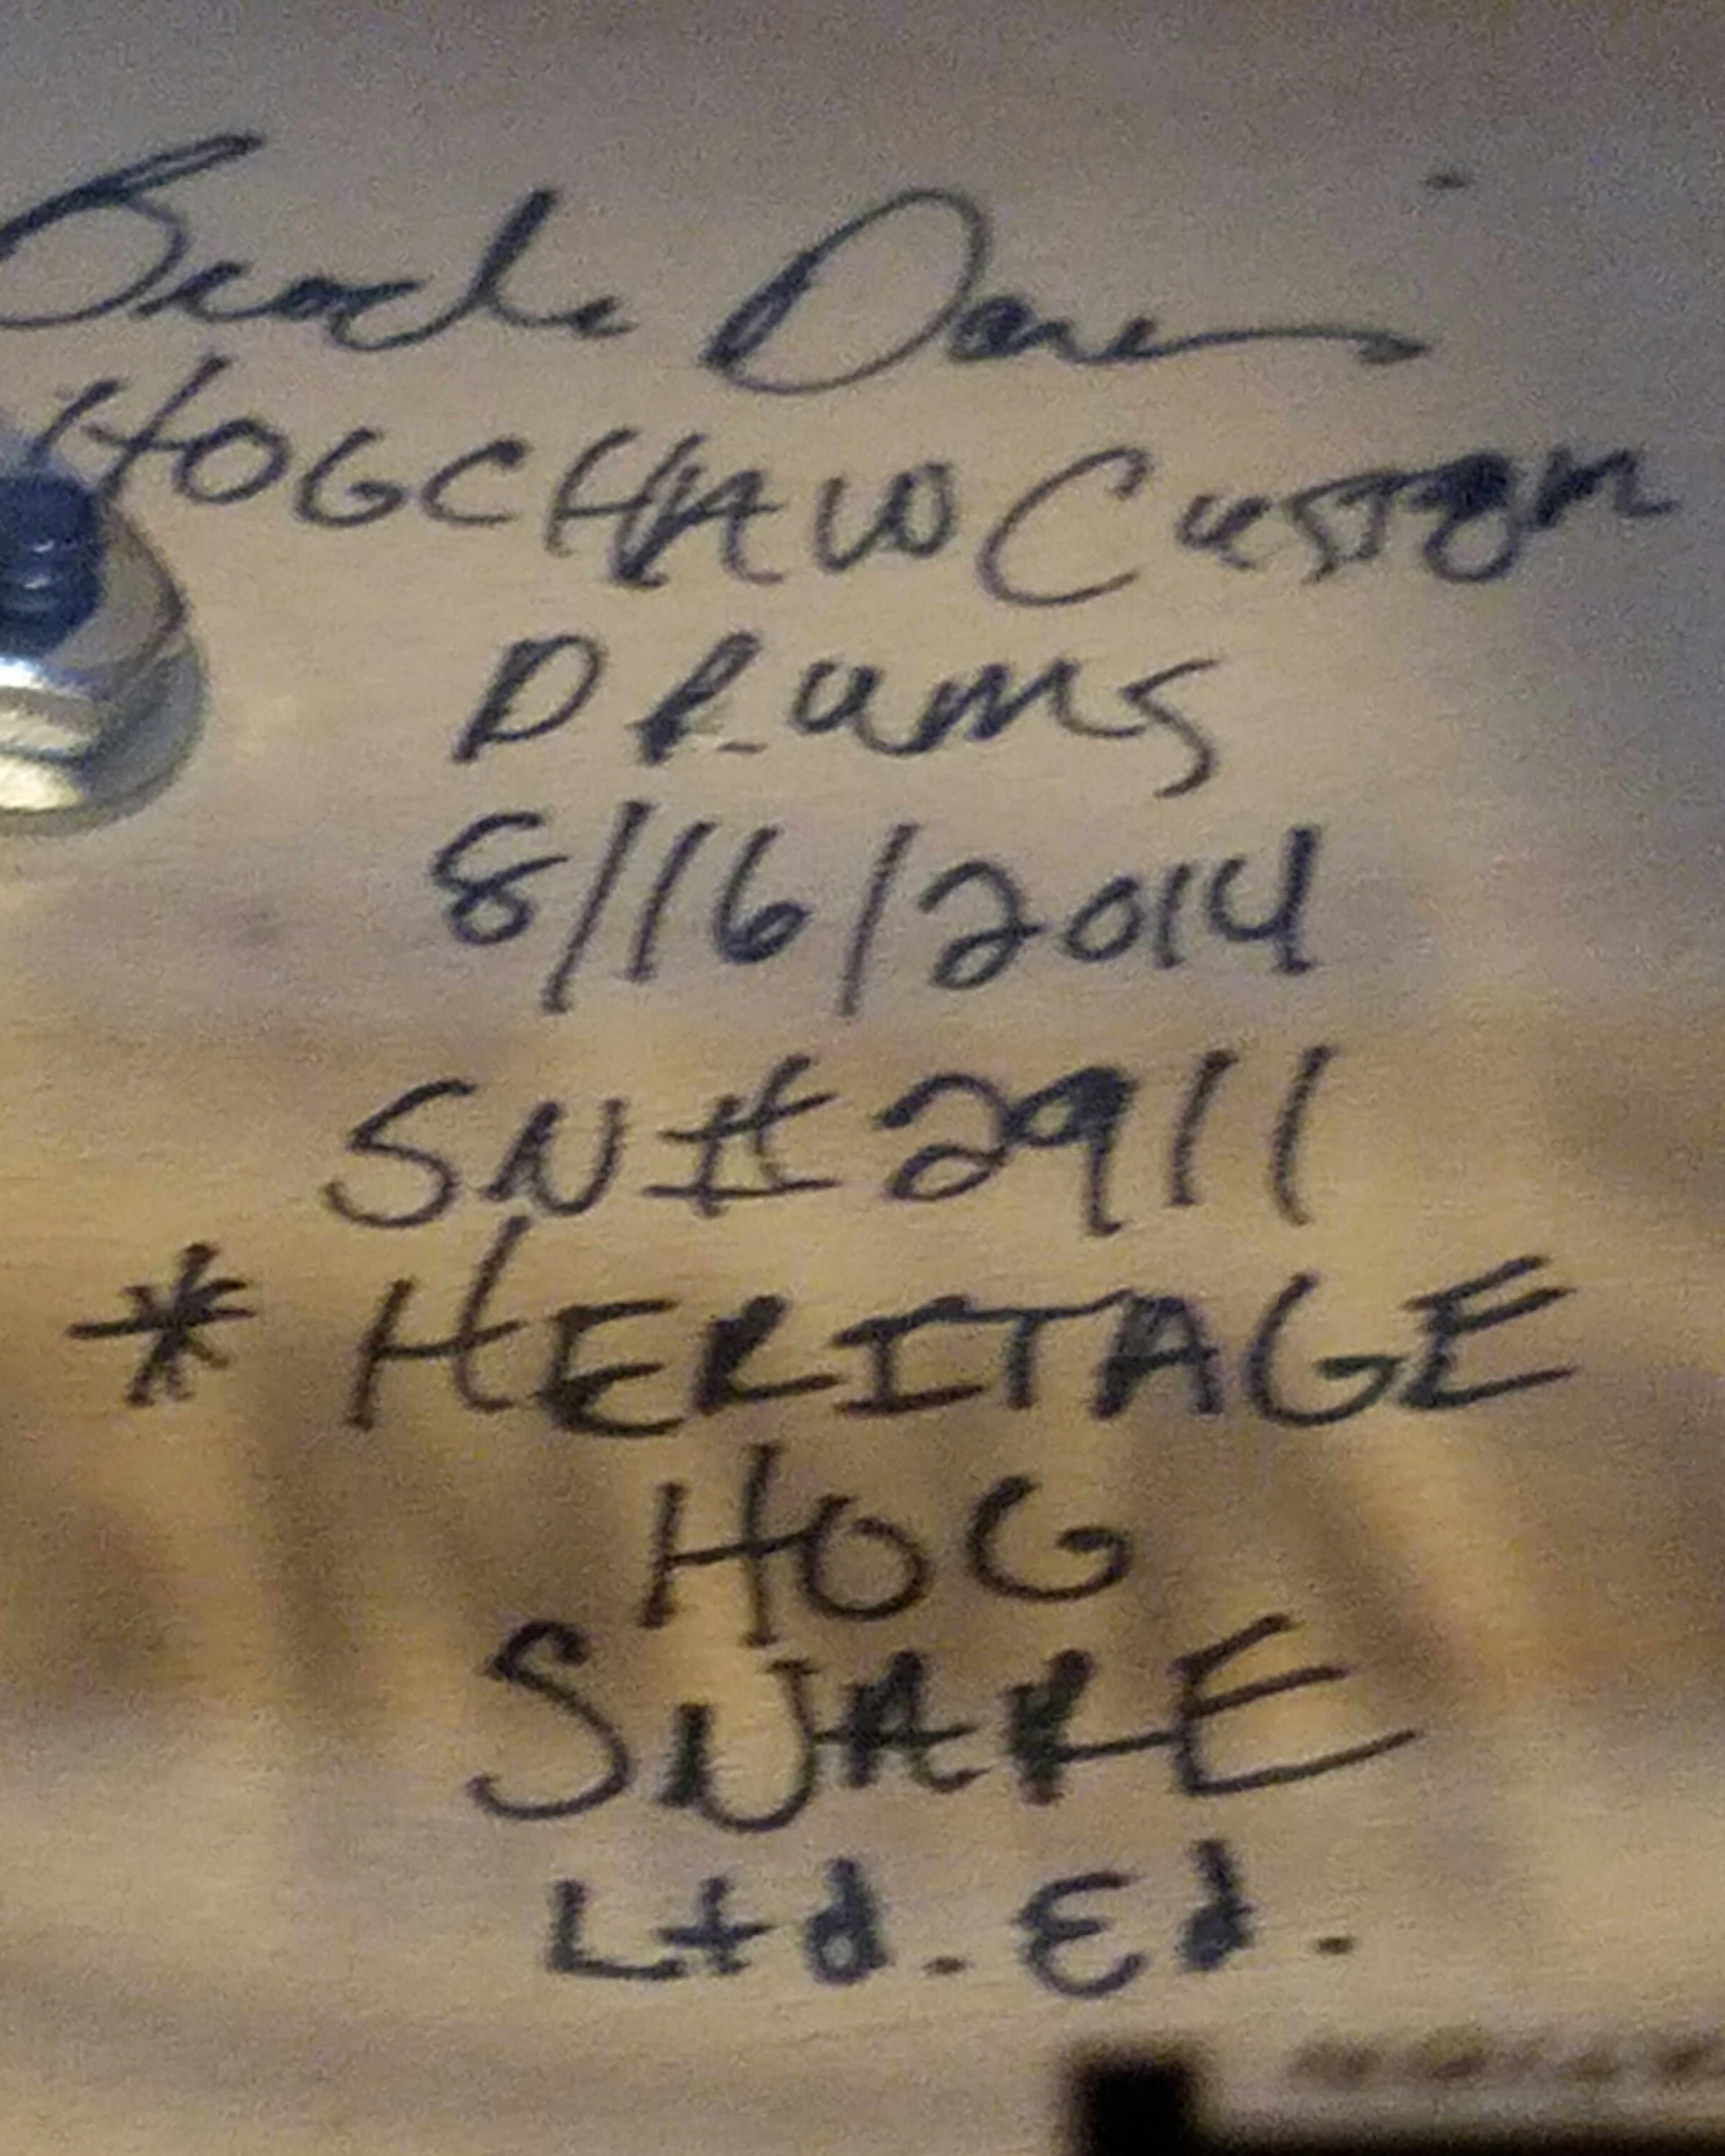 HOGCHAW Custom
DRums
8/16/2014
SN#2911
* HERITAGE
HOG
SNARE
Ltd. Ed.